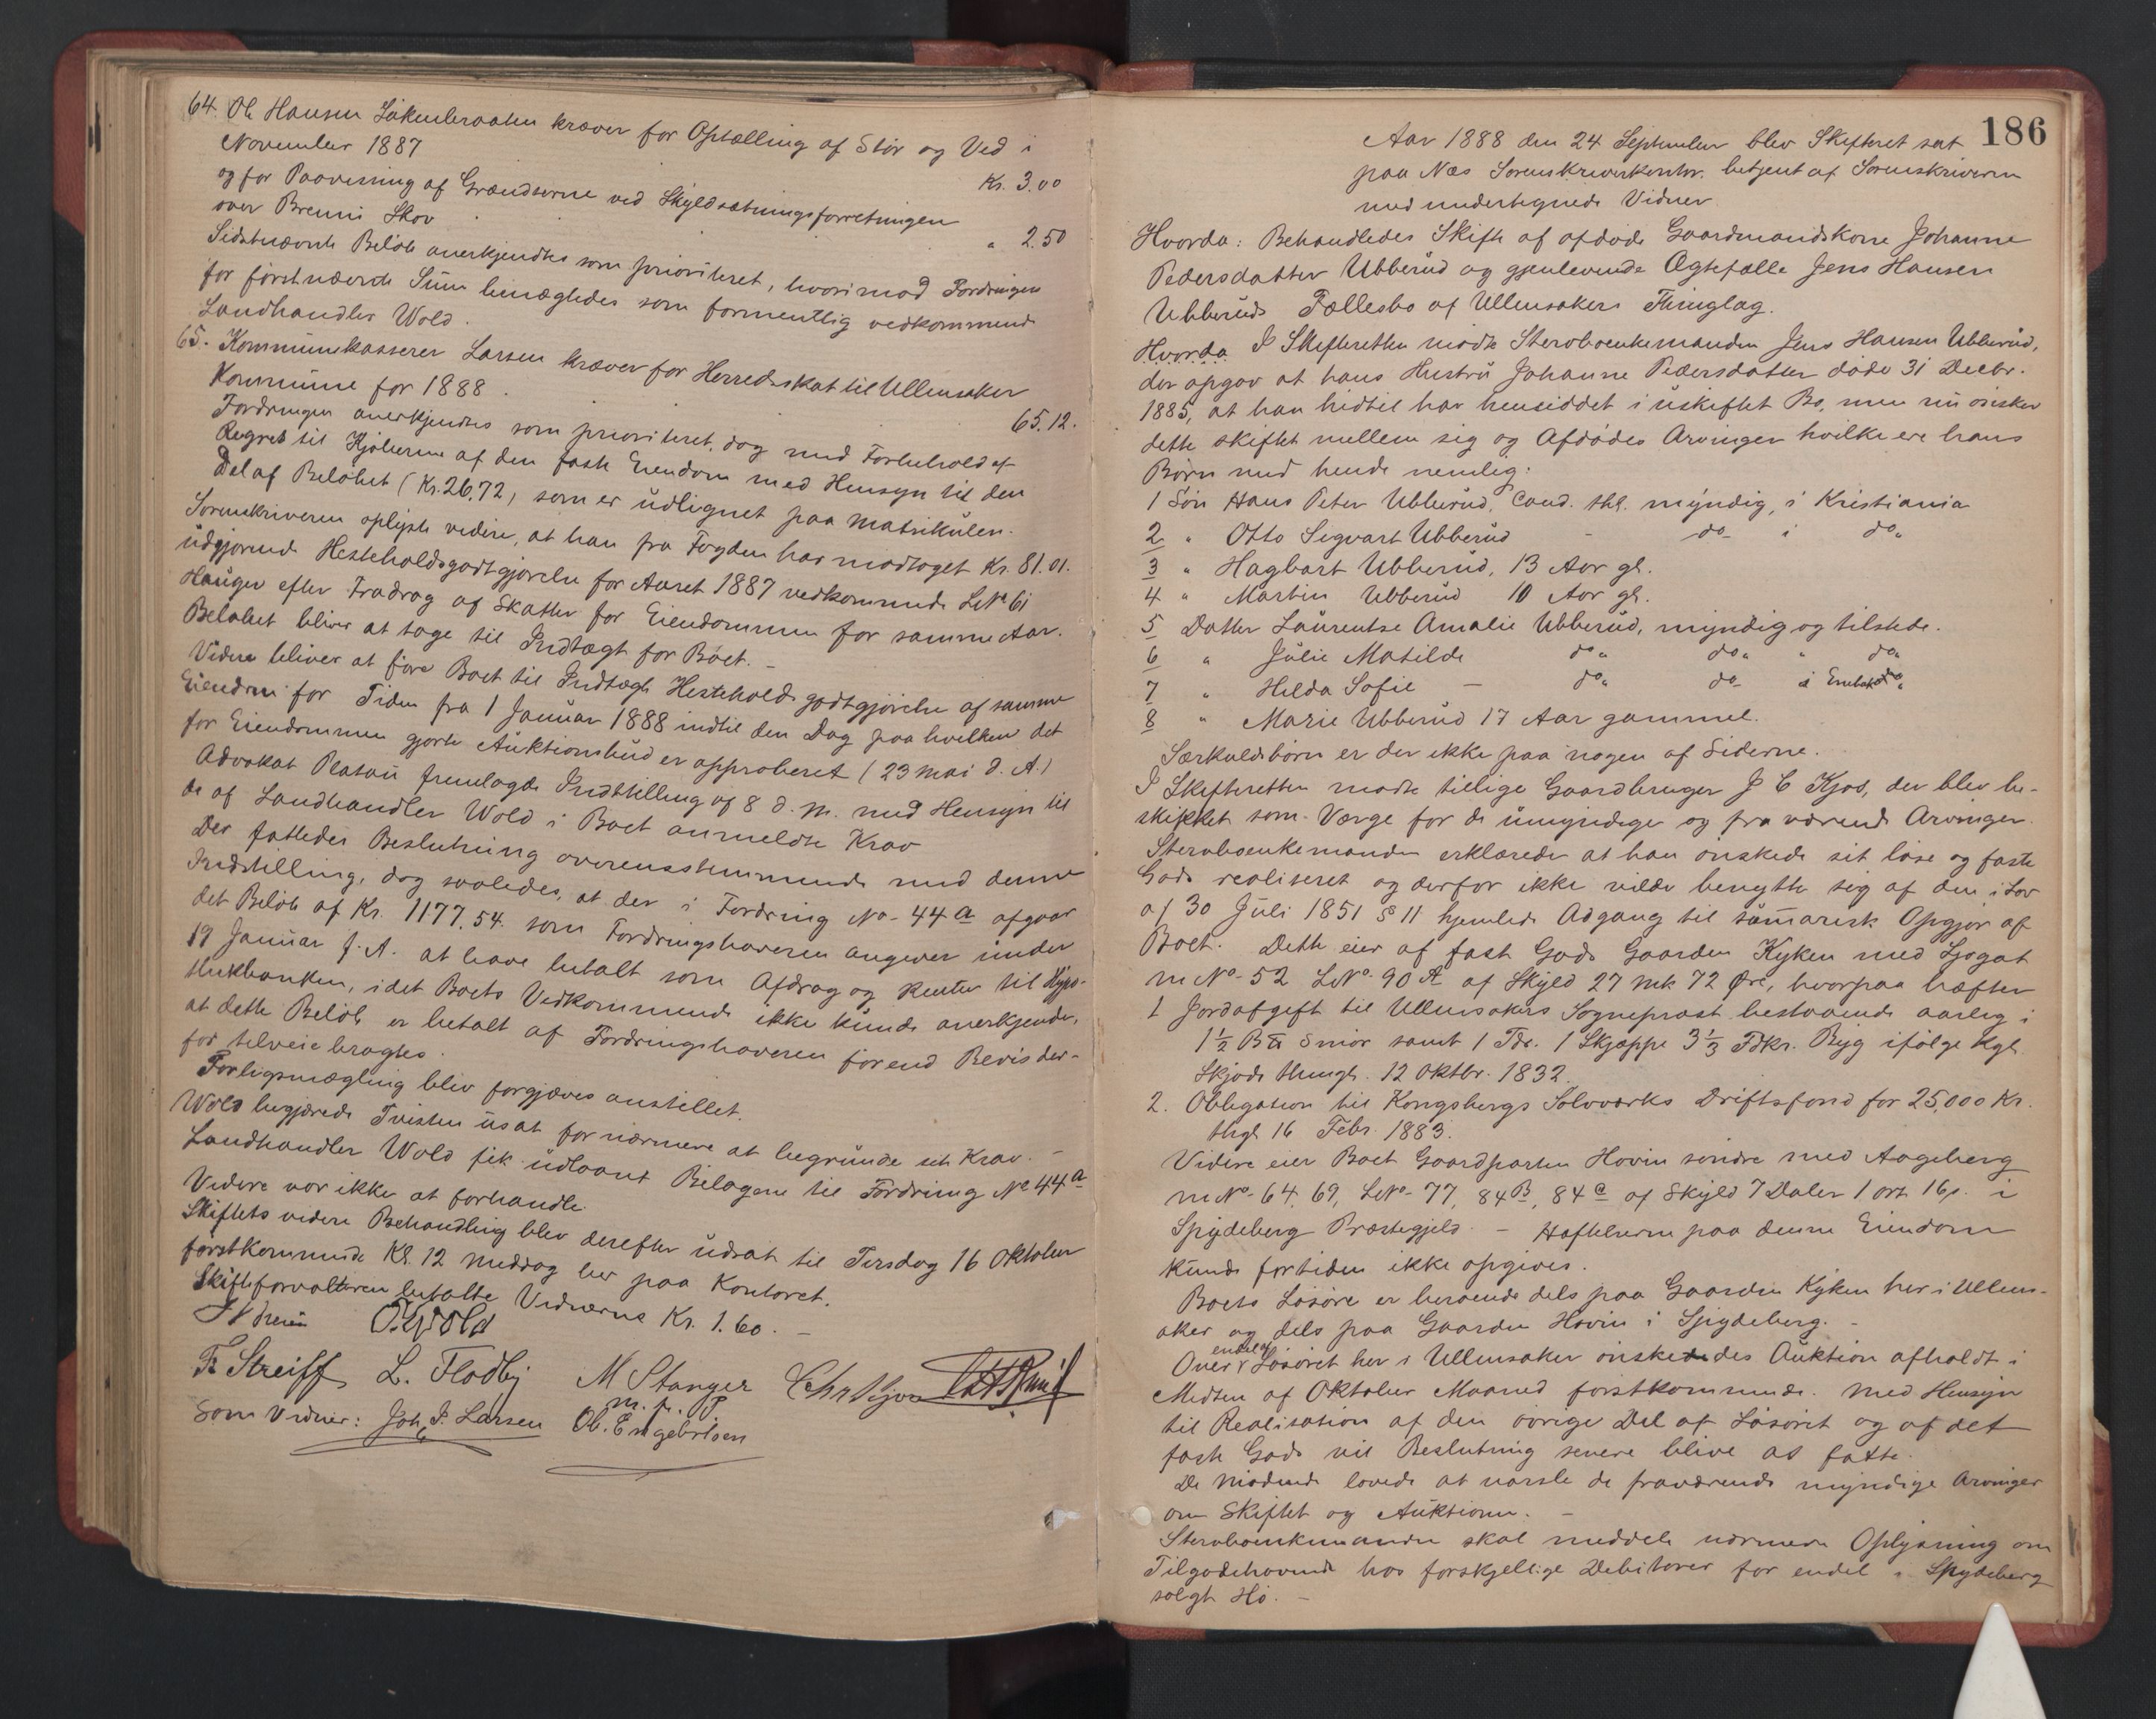 64. Ole Hansen Låkenbraaten kræver for Optælling af Stör og Ved i
November 1887 Kr. 3.00
og for Paavisning af Grændserne ved Skyldsætningsforretningen
over Brenni Skov " 2.50
Sidstnævnte Belöb anerkjendtes som prioriteret, hvorimod Fordringen
for förstnævnte Sum benægtedes som formentlig vedkommende
Landhandler Wold.
65. Kommunekasserer Larsen kræver for Herredsskat til Ullensaker
Kommune for 1888 65.12.
Fordringen anerkjendtes som prioriteret, dog med Forbehold af
Regres til Kjöberne af den faste Eiendom med Hensyn til den
Del af Belöbet (Kr. 26.72) som er udlignet paa Matrikulen.
Sorenskriveren oplyste videre, at han fra Fogden har modtaget Kr. 81.01.
udgjörende Hesteholdsgodtgjörelse for Aaret 1887 vedkommende LNo 61
Hauger efter Fradrag af Skatter for Eiendommen for samme Aar.
Belöbet bliver at tage til Indtægt for Boet. -
Videre bliver at före Boet til Indtægt Hesteholdsgodtgjörelse af samme
Eiendom for Tiden fra 1 Januar 1888 indtil den Dag paa hvilken det
for Eiendommen gjorte Auktionsbud er approberet (23 Mai d. A.)
Advokat Platou fremlagde Indstilling af 8 d. M. med Hensyn til
de af Landhandler Wold i Boet anmeldte Krav
Der fattedes Beslutning overensstemmende med denne
Indstilling, dog saaledes, at der i Fordring No- 44a afgaar
det Belöb af Kr. 1177.54. som Fordringshaveren angiver under
19 Januar f. A. at have betalt som Afdrag og Renter til Hypo-
thekbanken, idet Boets Vedkommende ikke kunde anerkjende,
at dette Belöb er betalt af Fordringshaveren förend Bevis der-
for tilveiebragtes.
Forligsmægling blev forgjæves anstillet.
Wold begjærede Tvisten udsat for nærmere at begrunde sit Krav. -
Landhandler Wold fik udlaant Bilagene til Fordring No 44a
Videre var ikke at forhandle.
Skiftets videre Behandling blev derefter udsat til Tirsdag 16 Oktober
förstkommende Kl. 12 Middag her paa Kontoret.
Skifteforvalteren betalte Vidnerne Kr. 1.60. -
O. Wold
Fr Streiff L. Flodby M Stanger Chr Kjos
m. p. P
Som Vidner: Joh. P. Larsen Ol. Engebretsen
186
Aar 1888 den 24 September blev Skifteret sat
paa Næs Sorenskriverkontor. betjent af Sorenskriveren
med undertegnede Vidner
Hvorda: Behandledes Skifte af afdöde Gaardmandskone Johanne
Pedersdatter Ubberud og gjenlevende Ægtefælle Jens Hansen
Ubberuds Fællesbo af Ullensakers Thinglag.
Hvorda I Skifteretten mödte Stervboenkemanden Jens Hansen Ubberud,
der opgav at hans Hustru Johanne Pedersdatter döde 31 Decbr.
1885, at han hidtil har hensiddet i uskiftet Bo, men nu önsker
dette skiftet mellem sig og Afdödes Arvinger hvilke ere hans
Börn med hende nemlig:
1 Sön Hans Peter Ubberud, Cand. thl. myndig, i Kristiania
2 " Otto Segvart Ubberud - do- i do"
3 " Hagbart Ubberud, 13 Aar gl.
4 " Martin Ubberud 10 Aar gl.
5 Datter Laurentse Amalie Ubberud, myndig og tilstede.
6 " Julie Matilde do" do" " do"
7 " Hilda Sofie - do" do- i Enebak
8 " Marie Ubberud 17 Aar gammel.
Særkuldsbörn er der ikke paa nogen af Siderne.
I Skifteretten mödte tillige Gaardbruger J C Kjos, der blev be-
skikket som Værge for de umyndige og fraværende Arvinger.
Stervboenkemanden erklærede at han önskede sit löse og faste
Gods realiseret og derfor ikke vilde benytte sig af den i Lov
af 30 Juli 1851 § 11 hjemlede Adgang til summarisk Opgjör af
Boet. Dette eier af fast Gods Gaarden Kyken med Ljogat
mNo- 52 LNo- 90A af Skyld 27 Mk 72 Öre, hvorpaa hæfter
1 Jordafgift til Ullensakers Sogneprest bestaaende aarlig i
1½ B℔ Smör samt 1 Tdr. 1 Skjæppe 3⅓ Fdkr. Byg ifölge Kgl.
Skjöde thinglt. 12 Oktbr. 1832.
2. Obligation til Kongsbergs Sölvværks Driftsfond for 25,000 Kr.
thgl 16 Febr. 1883.
Videre eier Boet Gaardparten Hovin söndre med Aageberg
mNo- 64, 69, LNo- 77, 84B, 84C af Skyld 7 Daler 1 ort 16 s. i
Spydeberg Præstegjeld. - Hæftelserne paa denne Eiendom
kunde fortiden ikke opgives.
Boets Lösöre er beroende dels paa Gaarden Kyken her i Ullens-
aker og dels paa Gaarden Hovin i Spydeberg. -
Over endel af Lösöret her i Ullensaker önskedes Auktion afholdt i
Midten af Oktober Maaned förstkommende. Med Hensyn
til Realisation af den övrige Del af Lösöret og af det
faste Gods vil Beslutning senere blive at fatte.
De Mödende lovede at varsle de fraværende myndige Arvinger
om Skiftet og Auktionen. -
Stervboenkemanden skal meddele nærmere Oplysning om
Tilgodehavende hos forskjellige Debitorer for endel i Spydeberg
solgt Hö. -